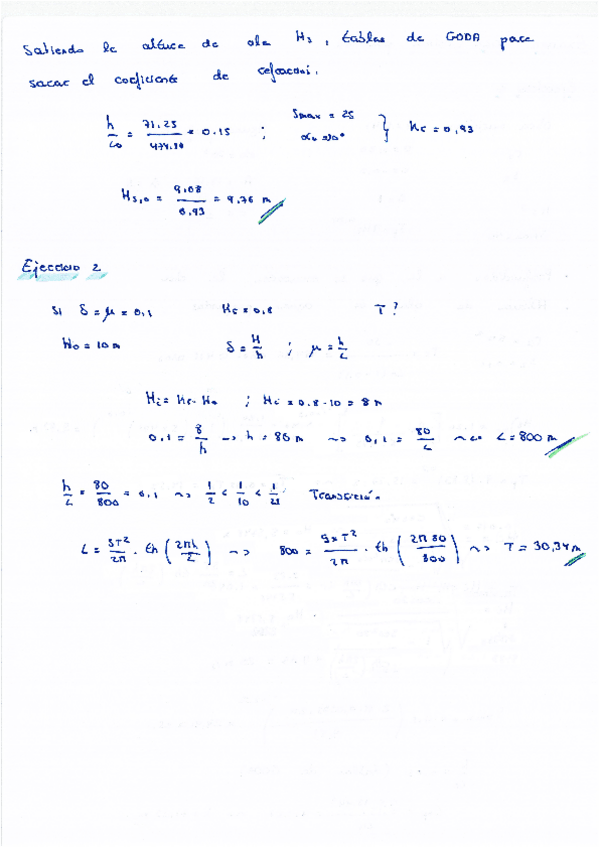 Sabiendo la altura de ola Hs, tablas de GODA para
sacar el coeficiente de refracción.
h/Lo = 71.25/474.90 = 0.15 ; Smax = 25 } Kr = 0,93
Hs,o = 9,08/0,93 = 9,76 m
Ejercicio 2
Si δ = μ = 0,1 Kr = 0,8 T?
Ho = 10 m δ = H/h ; μ = h/L
Hi = Kr · Ho ; Hi = 0.8 · 10 = 8 m
0,1 = 8/h -> h = 80 m ~> 0,1 = 80/L ~> L = 800 m
h/L = 80/800 = 0,1 ~> 1/2 < 1/10 < 1/21 Transición.
L = gT²/2π · th (2πh/L) ~> 800 = g×T²/2π · th (2π 80/800) ~> T = 30,34 m